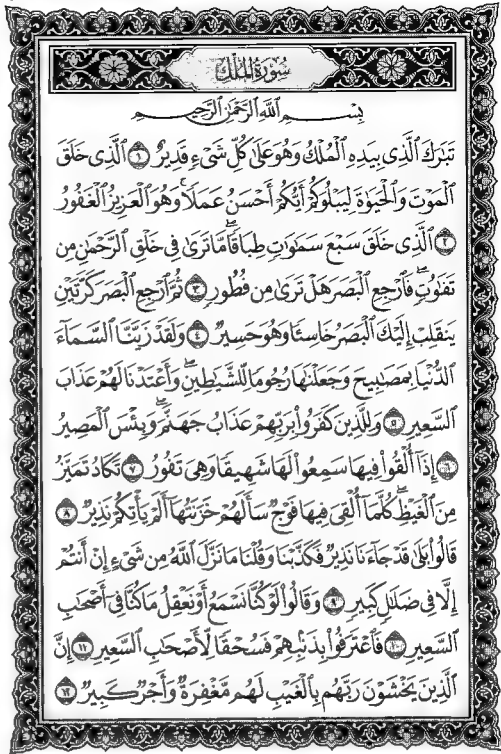 سُورَةُ الْمُلْكِ
بِسْمِ اللَّهِ الرَّحْمَٰنِ الرَّحِيمِ
تَبَٰرَكَ الَّذِي بِيَدِهِ الْمُلْكُ وَهُوَ عَلَىٰ كُلِّ شَيْءٍ قَدِيرٌ ۝١ الَّذِي خَلَقَ
الْمَوْتَ وَالْحَيَوٰةَ لِيَبْلُوَكُمْ أَيُّكُمْ أَحْسَنُ عَمَلًا ۚ وَهُوَ الْعَزِيزُ الْغَفُورُ
۝٢ الَّذِي خَلَقَ سَبْعَ سَمَٰوَٰتٍ طِبَاقًا ۖ مَّا تَرَىٰ فِي خَلْقِ الرَّحْمَٰنِ مِن
تَفَٰوُتٍ ۖ فَارْجِعِ الْبَصَرَ هَلْ تَرَىٰ مِن فُطُورٍ ۝٣ ثُمَّ ارْجِعِ الْبَصَرَ كَرَّتَيْنِ
يَنقَلِبْ إِلَيْكَ الْبَصَرُ خَاسِئًا وَهُوَ حَسِيرٌ ۝٤ وَلَقَدْ زَيَّنَّا السَّمَآءَ
الدُّنْيَا بِمَصَٰبِيحَ وَجَعَلْنَٰهَا رُجُومًا لِّلشَّيَٰطِينِ ۖ وَأَعْتَدْنَا لَهُمْ عَذَابَ
السَّعِيرِ ۝٥ وَلِلَّذِينَ كَفَرُوا بِرَبِّهِمْ عَذَابُ جَهَنَّمَ ۖ وَبِئْسَ الْمَصِيرُ
۝٦ إِذَآ أُلْقُوا فِيهَا سَمِعُوا لَهَا شَهِيقًا وَهِيَ تَفُورُ ۝٧ تَكَادُ تَمَيَّزُ
مِنَ الْغَيْظِ ۖ كُلَّمَآ أُلْقِيَ فِيهَا فَوْجٌ سَأَلَهُمْ خَزَنَتُهَآ أَلَمْ يَأْتِكُمْ نَذِيرٌ ۝٨
قَالُوا بَلَىٰ قَدْ جَآءَنَا نَذِيرٌ فَكَذَّبْنَا وَقُلْنَا مَا نَزَّلَ اللَّهُ مِن شَيْءٍ إِنْ أَنتُمْ
إِلَّا فِي ضَلَٰلٍ كَبِيرٍ ۝٩ وَقَالُوا لَوْ كُنَّا نَسْمَعُ أَوْ نَعْقِلُ مَا كُنَّا فِيٓ أَصْحَٰبِ
السَّعِيرِ ۝١٠ فَاعْتَرَفُوا بِذَنۢبِهِمْ فَسُحْقًا لِّأَصْحَٰبِ السَّعِيرِ ۝١١ إِنَّ
الَّذِينَ يَخْشَوْنَ رَبَّهُم بِالْغَيْبِ لَهُم مَّغْفِرَةٌ وَأَجْرٌ كَبِيرٌ ۝١٢